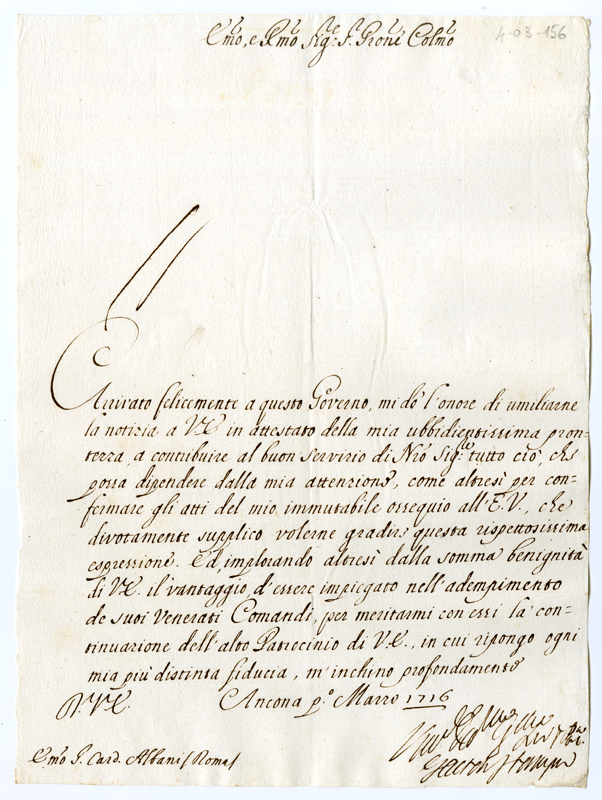 Em̃o, e Rm̃o Sig.e P. Proñe Colm̃o
4-03-156
Arrivato felicemente a questo Governo, mi dò l'onore di umiliarne
la notizia a V.E. in attestato della mia ubbidientissima pron=
tezza, a contribuire al buon servizio di Nr̃o Sig.re tutto ciò, che
possa dipendere dalla mia attenzione, come altresì per con=
fermare gli atti del mio immutabile ossequio all'E.V., che
divotamente supplico volerne gradire questa rispettosissima
espressione. Ed implorando altresì dalla somma benignità
di V.E. il vantaggio, d'essere impiegato nell'adempimento
de suoi venerati Comandi, per meritarmi con essi la con=
tinuazione dell'alto Patrocinio di V.E., in cui ripongo ogni
mia più distinta fiducia, m'inchino profondamente
Ancona p.o Marzo 1716
D.V.E.
Em̃o S. Card. Albani / Roma /